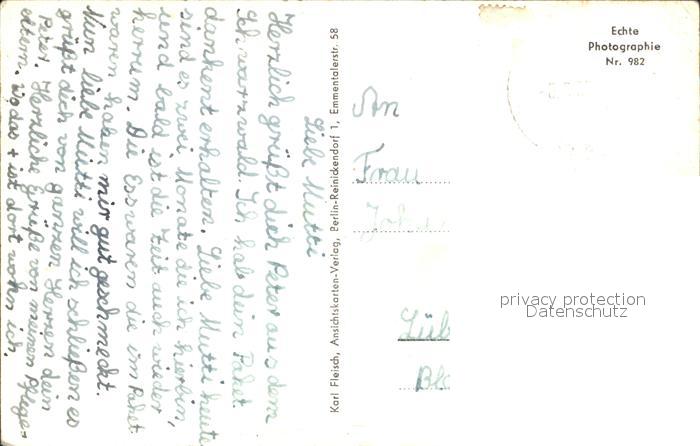 Liebe Mutti
Herzlich grüßt dich Peter aus dem
Schwarzwald. Ich hab dein Paket
dankent erhalten. Liebe Mutti heute
sind es zwei Monate die ich hierbin,
und bald ist die Zeit auch wieder
herrum. Die Esswaren die im Paket
waren haben mir gut geschmeckt.
Nun liebe Mutti will ich schließen es
grüßt dich von ganzen Herzen dein
Peter. Herzliche Grüße von meinen Pflege-
eltern. Wo das + ist dort wohn ich.
Karl Fleisch, Ansichtskarten-Verlag, Berlin-Reinickendorf 1, Emmentalerstr. 58
Echte
Photographie
Nr. 982
An
Frau
Lüb
privacy protection
Datenschutz